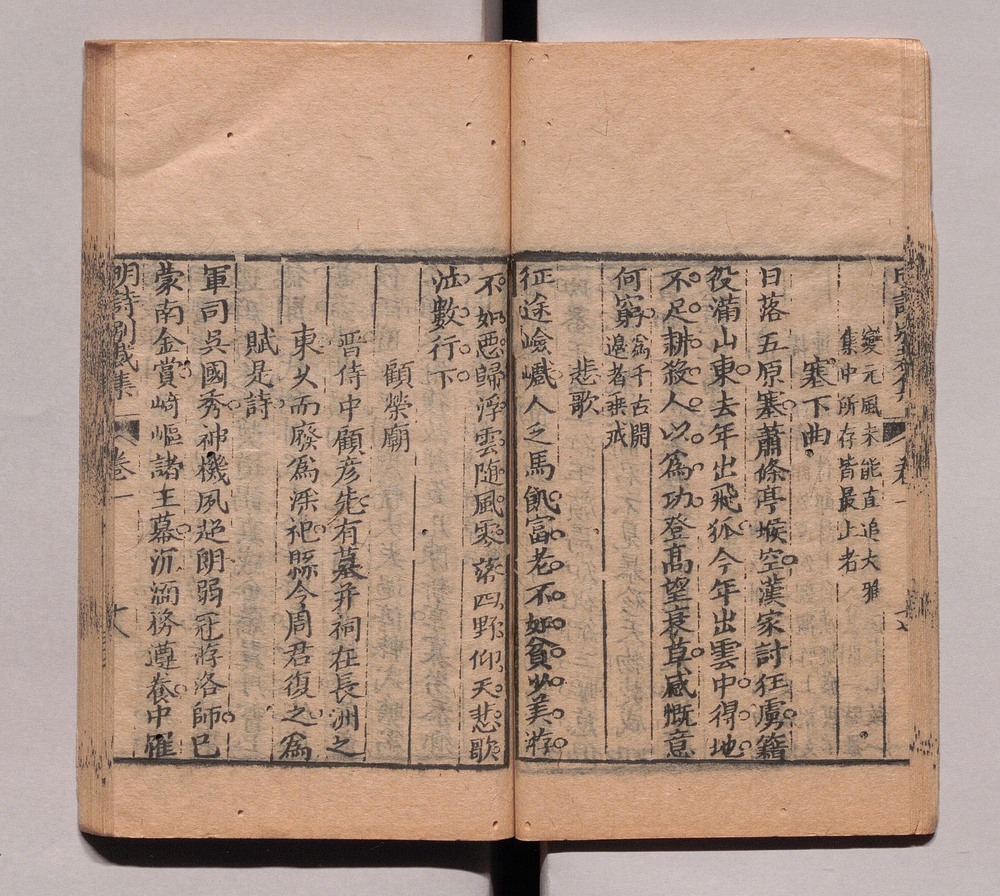 變元風未能直追大雅
集中所存皆最上者
塞下曲
日落五原塞蕭條亭堠空漢家討狂虜籍
役滿山東去年出飛狐今年出雲中得地
不足耕殺人以為功登高望衰草感慨意
何窮為千古開
邊者垂戒
悲歌
征途險巇人乏馬飢富老不如貧少美游
不如惡歸浮雲隨風零落四野仰天悲歌
泣數行下
顧榮廟
晋侍中顧彦先有墓并祠在長洲之
東乆而廢為淫祀縣令周君復之為
賦是詩
軍司吳國秀神機夙超朗弱冠游洛師已
蒙南金賞崎嶇諸王幕沉湎務遵養中罹
明詩別裁集
卷一
六
明詩別裁集
卷一